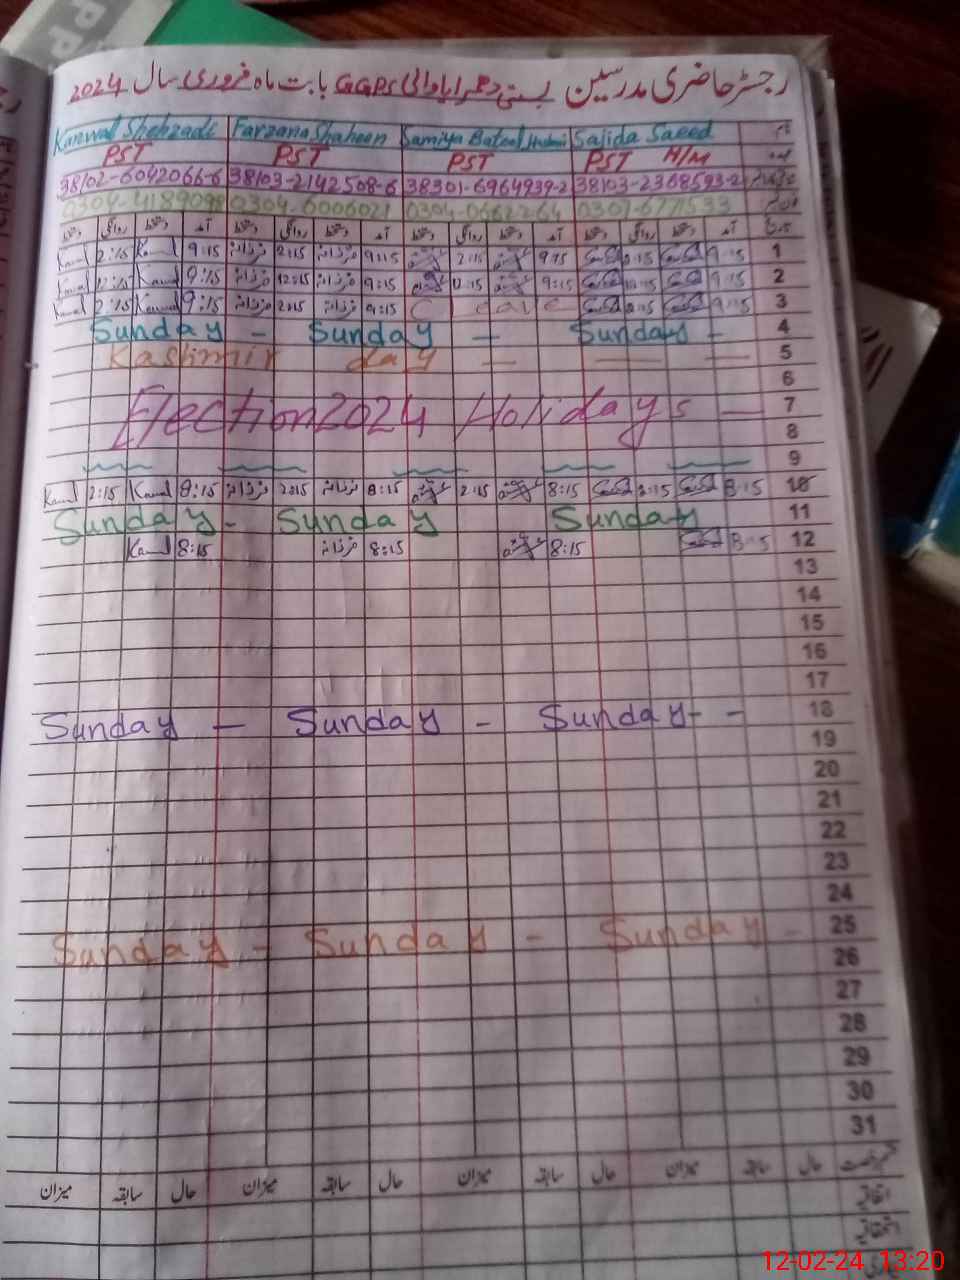 رجسٹر حاضری مدرسین بستی دھمرایاوالی GGPS بابت ماہ فروری سال 2024
Kanwal Shehzadi Farzana Shaheen Samiya Batool Sajida Saeed نام
PST PST PST PST H/M عہدہ
38102-6042066-6 38103-2142508-6 38301-6964939-2 38103-2368593-2
0304-4189098 0304-6006021 0304-0662264 0307-6771533
دستخط روانگی دستخط آمد دستخط روانگی دستخط آمد دستخط روانگی دستخط آمد دستخط روانگی دستخط آمد تاریخ
Kanwal 2:15 Kanwal 9:15 فرزانہ 2:15 فرزانہ 9:15 2:15 9:15 2:15 9:15 1
Kanwal 12:15 Kanwal 9:15 فرزانہ 12:15 فرزانہ 9:15 12:15 9:15 12:15 9:15 2
Kanwal 2:15 Kanwal 9:15 فرزانہ 2:15 فرزانہ 9:15 C leave 2:15 9:15 3
Sunday - Sunday - Sunday - 4
Kashmir day - - - 5
6
Election 2024 Holidays - 7
8
9
Kanwal 2:15 Kanwal 8:15 فرزانہ 2:15 فرزانہ 8:15 2:15 8:15 2:15 8:15 10
Sunday - Sunday Sunday 11
Kanwal 8:15 فرزانہ 8:15 8:15 8:15 12
13
14
15
16
17
Sunday - Sunday - Sunday - - 18
19
20
21
22
23
24
Sunday - Sunday - Sunday - 25
26
27
28
29
30
31
میزان سابقہ حال میزان سابقہ حال میزان سابقہ حال میزان سابقہ حال قسم رخصت
اتفاقیہ
استحقاقیہ
12-02-24 13:20